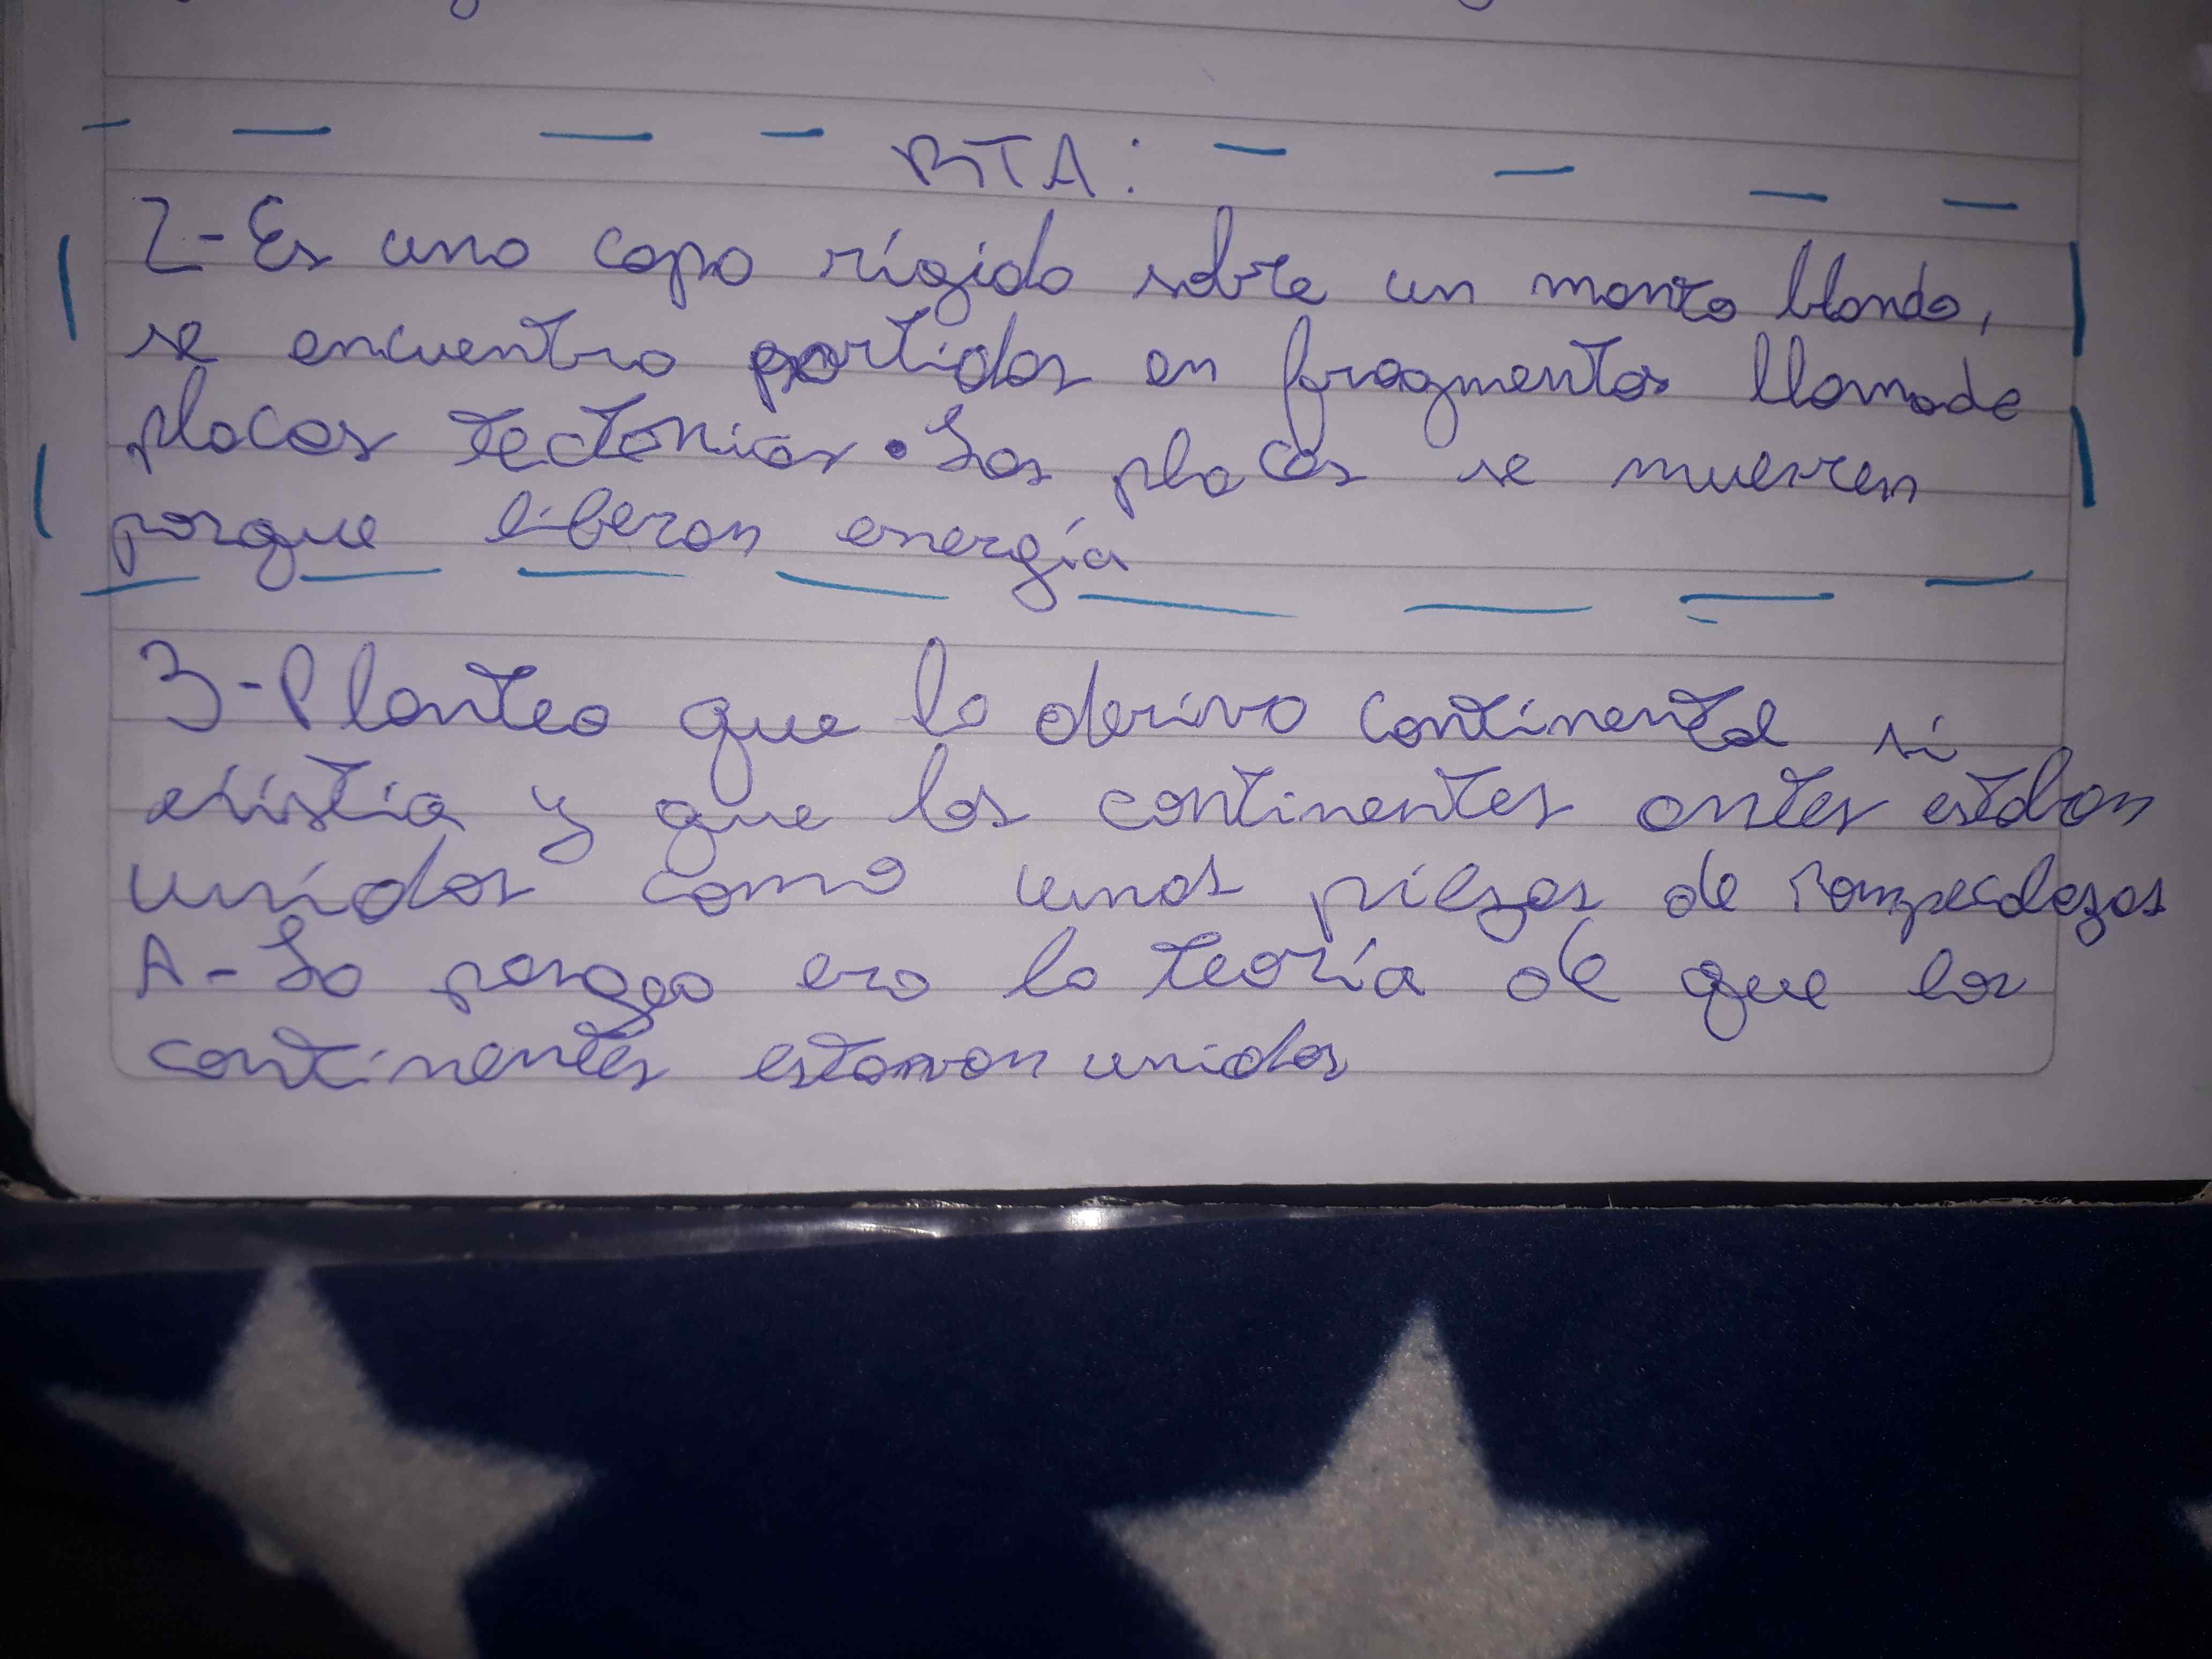 RTA:
2-Es una capa rígida sobre un manto blando,
se encuentra partidas en fragmentos llamade
placas tectonias. Las placas se mueven
porque liberan energía
3-Planteo que la deriva continental si
existía y que los continentes antes estaban
unidos como unas piezas de rompecabezas
A-La pangea era la teoría de que los
continentes estavan unidos